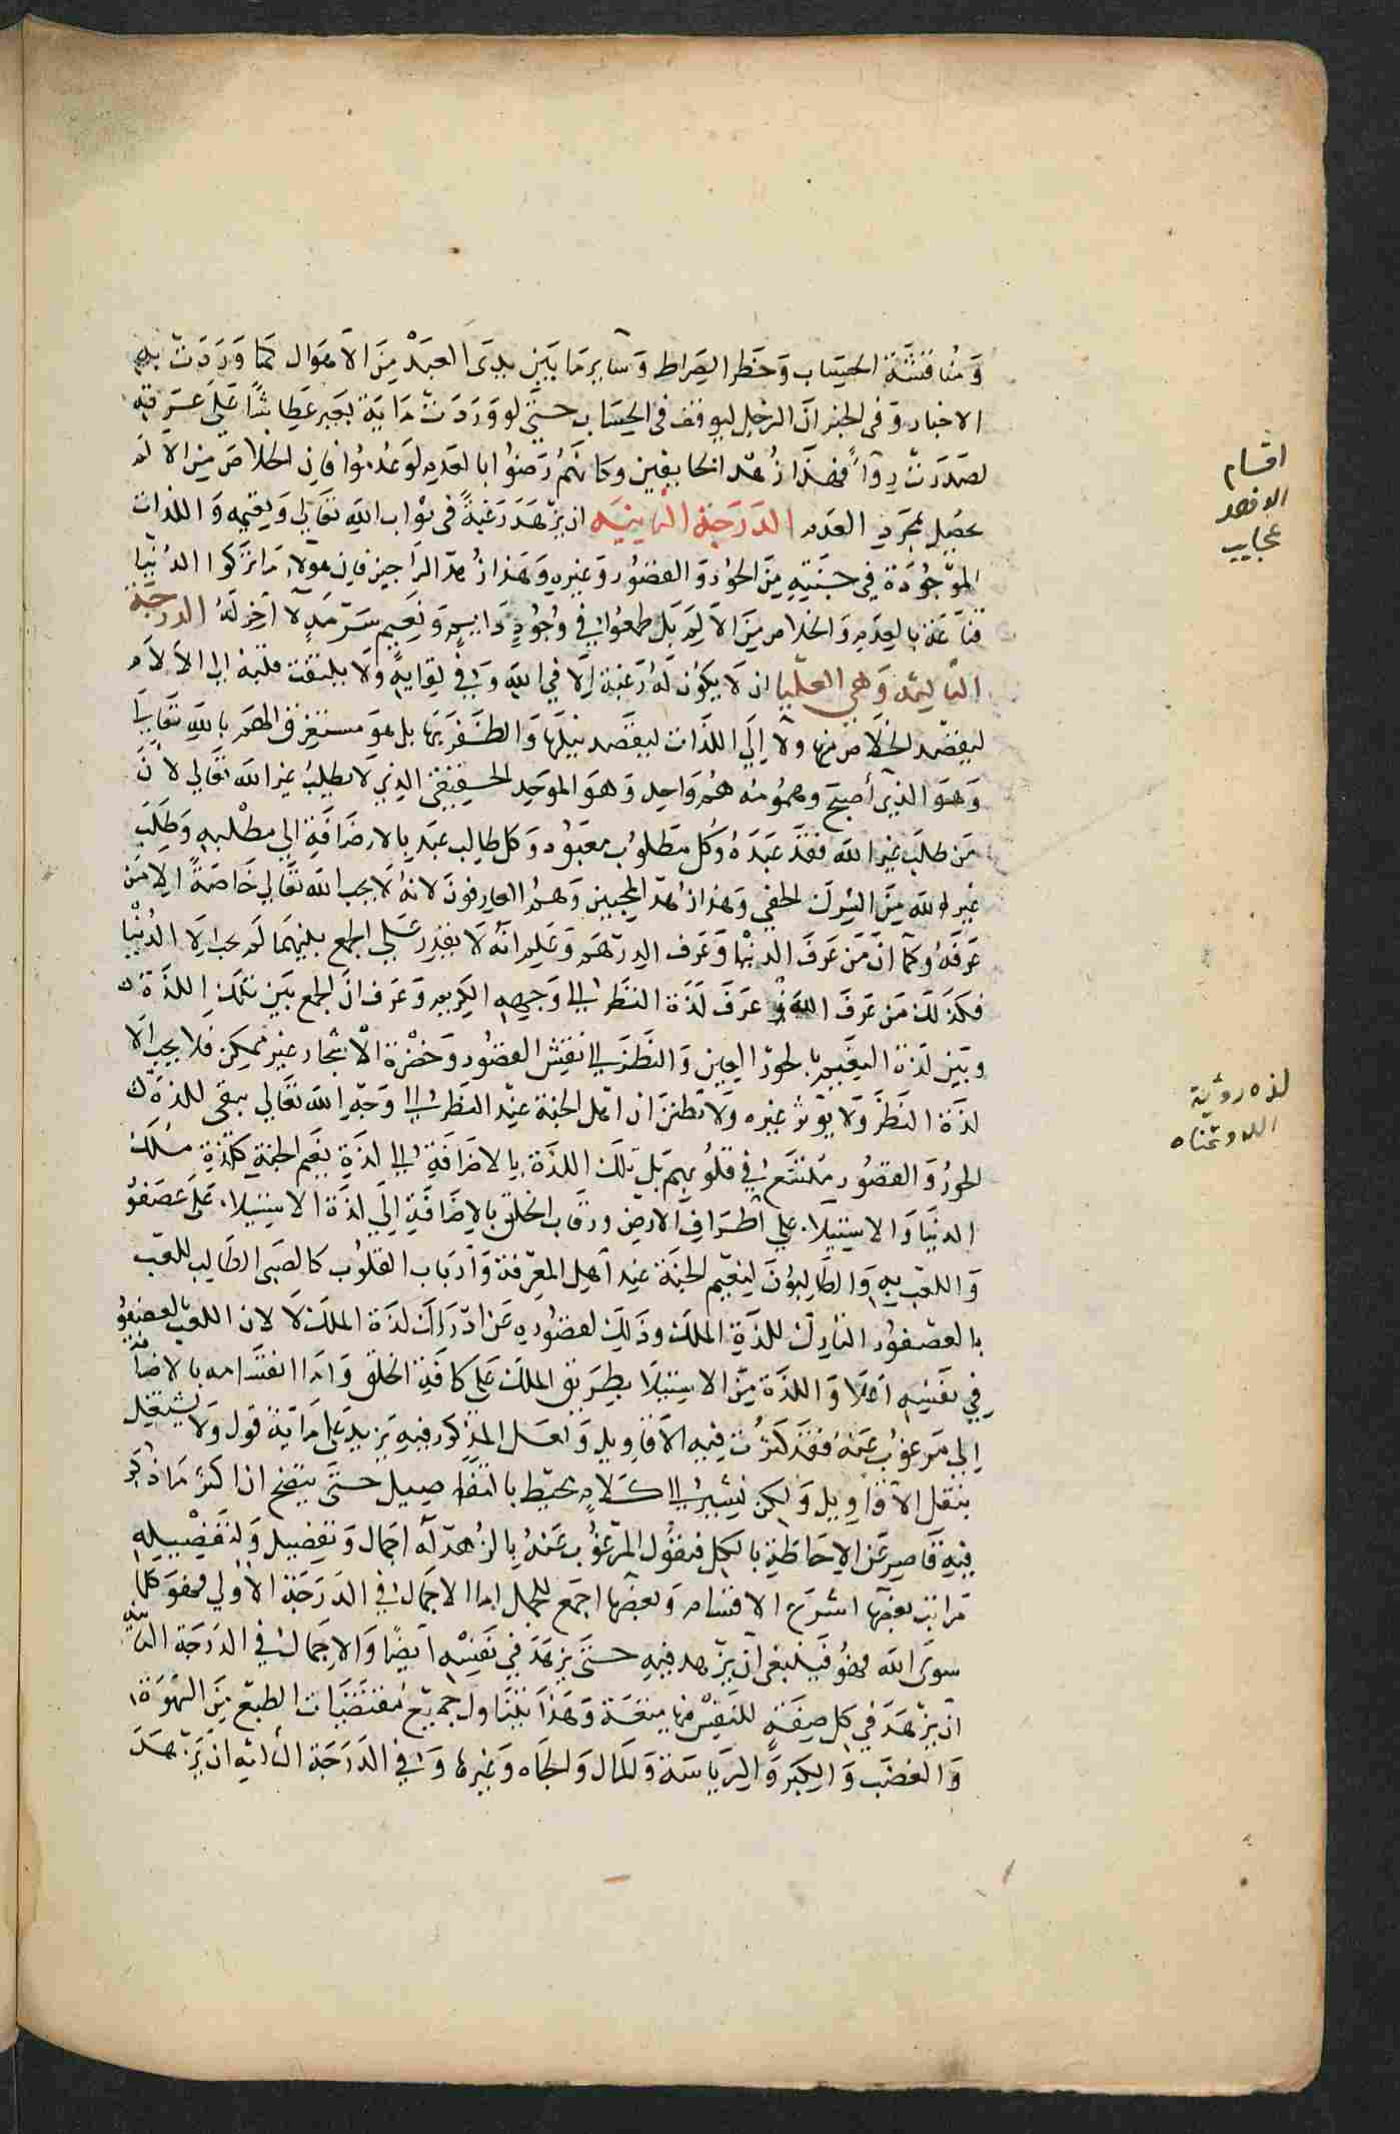 وَمُناقشَة الحِسَاب وَخطر الصِّراط وَسَايرمَا بَين يدَى العَبْد مِنَ الاَهوَال كمَا وَرَدَتْ بهِ
الاخبار وَفى الخبر انّ الرَجُل ليوقف فى الحِسَاب حَتَّى لو وَرَدَتْ مَايَة بَعير عطِاشًا عَلى عَرَقهِ
لصَدَرَتْ رِوَآً فهذَا زُهْد الخايفين وكانهمُ رَضوُا بالعَدَمِ لوَ عُدمُوا فاِن الخلاصَ مِنَ الاَلم
يحصُل بمجرّدِ العَدم الدَرَجَة الثانِيَه ان يزْهَدَ رَغبَةً فى ثوَاب اللهِ تعَالى وَنِعَمِه وَاللذات
الموَجُودَة فى جَنتهِ مِنَ الحوُر وَالقصُوُر وَغيرِه وَهَذَا زُهدُ الرَاجين فاِن هَولاَء مَا تركوُا الدُنيَا
قناَعَة بالعَدَمِ وَالخلاص مِنَ الاَلِم بَل طمعُوا فى وُجُوُدٍ دَايمٍ وَنعَيمٍ سَرْمَدٍ لاَ آخر لَهُ الدرجَة
الثالِثه وَهى العُليا ان لاَ يكوُن لَهُ رَغبة اِلا فى اللهِ وَفى لقِايهِ وَلا يلتفت قلبُهُ اِلى الاَلاَم
ليقصِد الخلاَص منِها ولاَ اِلىَ اللذَات ليقصَد نيلهَا وَالظفَر بَها بل هوَ مستغرق الهَم باِللهِ تعَالىَ
وَهوَ الذِى أصبَح وهمُومُهُ هَمّ وَاحِد وَهوَ الموَحد الحقيقى الذِى لاَ يطلبُ غير الله تعَالى لاَنّ
مَن طلَبَ غيرَ الله فقدَ عَبَدَهُ وَكُل مَطلوُبٍ مَعبوُد وَكل طالِب عبَد بِالاِضَافَةِ اِلى مطْلبهِ وَطلَب
غير الله مِنَ الشِرك الخفى وَهذا زُهدُ المحبين وَهُمُ العارفوُنَ لانهُ لاَ يحب الله تعَالى خَاصَةً الا مَن
عَرفهُ وَكمَا انّ مَن عَرفَ الدينَارَ وَعَرف الدِرْهمَ وَعَلِم انَّه لاَ يقدِر عَلى الجمع بينَهمَا لَم يحب اِلا الدينَار
فكذَلك مَن عَرفَ اللهَ وَ عَرفَ لَذَة النظَر اِلى وَجههِ الكريِم وَعَرف انَّ الجمع بَين تلكَ اللذَّة
وبَين لَذة التنَعّم بالحوُر العِين وَالنظَر اِلى نقش القصُور وَخضْرَة الاَشجَار غير ممكِن فلاَ يحِبّ اِلا
لذَّة النظَر وَلاَ يؤثر غيره وَلاَ تظنن ان اهل الجنة عنِد النظَر اِلى وَجهِ الله تعَالى يبقى للذة
الحوُر وَالقصُورِ متَّسَع فى قلوُبهِم بَل تلكَ اللذَة بِالاضَافَةِ اِلى لذَةِ نعيَم الجنة كلذةِ مُلك
الدنيَا وَالاستيلاَء عَلى اَطرَافِ الاَرض ورقَاب الخلق بالاِضَافَةِ اِلى لذة الاستيلاَء عَلى عصفوُر
وَاللعِب بهِ وَالطَالِبوُنَ لنعِيم الجنَة عنِد اَهل المعرِفة وَأربَاب القلوُب كالصَبى الطَالِب للعب
بالعصفوُر التَارك للذةِ الملك وَذَلِك لقصُورهِ عَن ادْرَاك لذَّة الملك لاَ لان اللعب بالعصفوُر
فى نفسِهِ اَعلاَ وَاللذَة مِنَ الاستيلاَ بطِريق الملك عَلى كافَة الخلق وَامَا انقسَامه بالاضافَة
اِلى مَرغوُب عَنهُ فقد كَثرُت فيه الاَقاوِيل وَلعَل المذكوَر فيهِ يَزيد عَلى مَايَة قول وَلاَ نشتغل
بنقل الاَقاوِيل وَلكِن نشيُر اِلى كلامٍ يحيط بالتفاصِيل حتَّى يتضِح ان اكثر مَا ذُكِر
فيهِ قاصِر عَن الاحَاطَةِ بالكل فنقوُل المرغوُب عَنهُ بِالزُهد لَه اجمَال وَتفِصيل وَلتفِصيلهِ
مَراتب بعضهَا اشرَح للاقسَام وَبعضهَا اجمَع للجمل امَا الاجمَال فى الدَرَجَة الاوُلى فهوَ كل مَا
سوِى الله فهوُ فيَنبغى اَن يزْهد فيهِ حَتَّى يزهَدَ فى نفسْهِ ايضًا وَالاِجمَال فى الدَرَجة الثانية
اَن يزْهَدَ فى كل صِفَةٍ للنَفْس فِيها متعَة وَهَذا يتنَاول جَميع مُقتضَيَات الطبع مِنَ الشهْوَة
وَالغضَب وَالكِبْر وَالرِيَاسَة وَالمَال وَالجَاه وَغيرهَا وَفى الدَرَجَة الثالثهِ ان يَزهَدَ
اقسام
عجايب
لذه رؤية